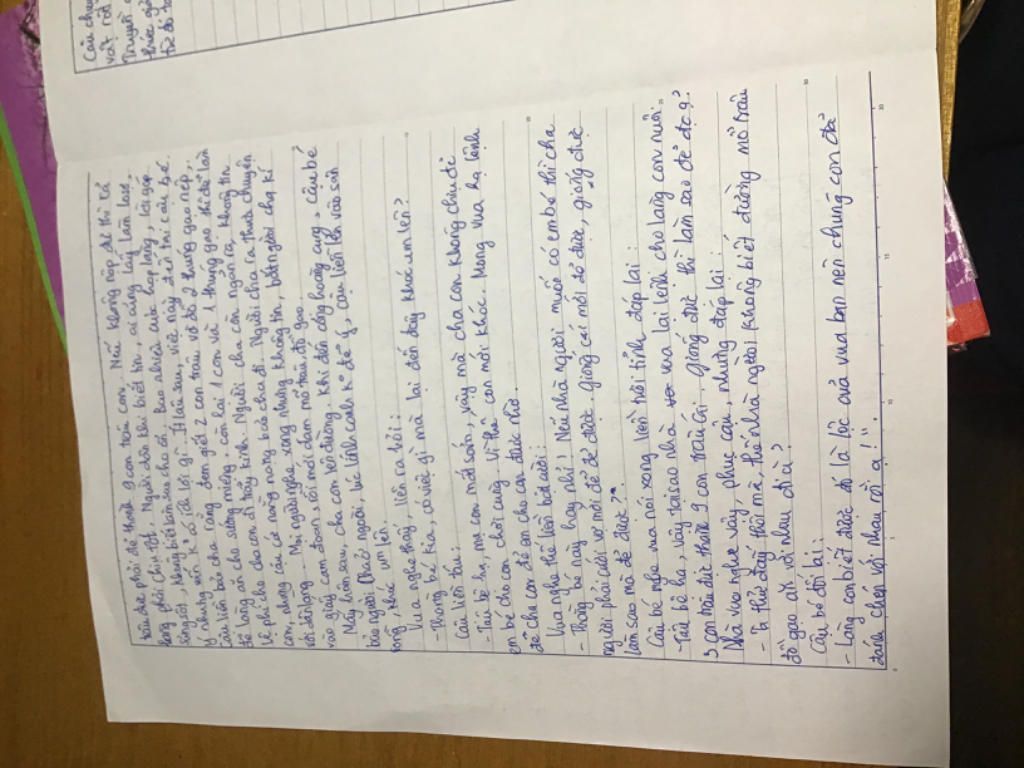 Câu chuy
vật rõ
Truyện
thức giả
từ đó to
trâu đực phải đẻ thành 9 con trâu con. Nếu không nộp đủ thì cả
làng phải chịu tội. Người dân khi biết tin, ai cũng lấy làm lạ,
sửng sốt, không biết làm sao cho ổn. Bao nhiêu cuộc họp làng, lời góp
ý nhưng vẫn k° có ích lợi gì. Ít lâu sau, việc này đến tai cậu bé.
Cậu liền bảo cha làng đem giết 2 con trâu và đồ 2 thúng gạo nếp,
để làng ăn cho sướng miệng, còn lại 1 con và 1 thúng gạo thì để làm
lệ phí cho cha con đi trẩy kinh. Người cha còn ngần ra, không tin
con, nhưng cậu cứ nằng nặng bảo cha đi. Người cha ra thưa chuyện
với dân làng. Mọi người nghe xong nhưng không tin, bắt người cha kí
vào giấy cam đoan, rồi mới dám mổ trâu, đồ gạo.
Mấy hôm sau, cha con lên đường. Khi đến cổng hoàng cung, cậu bé
bảo người cha ở ngoài, lúc lính canh k° để ý, cậu liền lẻn vào sân
rồng, khóc um lên.
Vua nghe thấy, liền ra hỏi:
- Thằng bé kia, có việc gì mà lại đến đây khóc um lên?
Cậu liền tâu:
- Tâu bệ hạ, mẹ con mất sớm, vậy mà cha con không chịu đẻ
em bé cho con chơi cùng. Vì thế con mới khóc. Mong vua hạ lệnh
để cha con đẻ em cho con được nhờ.
Vua nghe thế liền bật cười:
- Thằng bé này hay nhỉ! Nếu nhà ngươi muốn có em bé thì cha
ngươi phải cưới vợ mới đẻ được. giống cái mới đẻ được, giống đực
làm sao mà đẻ được?
Cậu bé nghe vua nói xong liền hỏi tỉnh đáp lại:
- Tâu bệ hạ, vậy tại sao nhà vua lại lệnh cho làng con nuôi
3 con trâu đực thành 9 con trâu cái, giống đực thì làm sao đẻ đc ạ?
Nhà vua nghe vậy, phục cậu, nhưng đáp lại:
- Ta thử đấy thôi mà, thế nhà ngươi không biết đường mổ trâu
đồ gạo ăn với nhau đi à?
Cậu bé đối lại:
- Làng con biết được đó là lộc của vua ban nên chúng con đã
đánh chén với nhau rồi ạ!".